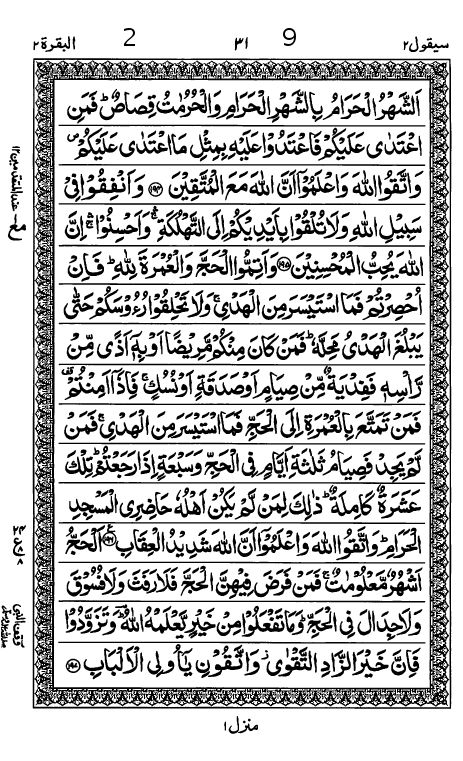 سيقول ٢ ٣١ 9 2 البقرة ٢
اَلشَّهْرُ الْحَرَامُ بِالشَّهْرِ الْحَرَامِ وَالْحُرُمٰتُ قِصَاصٌ ؕ فَمَنِ
اعْتَدٰى عَلَيْكُمْ فَاعْتَدُوْا عَلَيْهِ بِمِثْلِ مَا اعْتَدٰى عَلَيْكُمْ ۪
وَاتَّقُوا اللّٰهَ وَاعْلَمُوْۤا اَنَّ اللّٰهَ مَعَ الْمُتَّقِيْنَ ﴿۱۹۴﴾ وَاَنْفِقُوْا فِيْ
سَبِيْلِ اللّٰهِ وَلَا تُلْقُوْا بِاَيْدِيْكُمْ اِلَى التَّهْلُكَةِ ۛۚ وَاَحْسِنُوْا ۛۚ اِنَّ
اللّٰهَ يُحِبُّ الْمُحْسِنِيْنَ ﴿۱۹۵﴾ وَاَتِمُّوا الْحَجَّ وَالْعُمْرَةَ لِلّٰهِ ؕ فَاِنْ
اُحْصِرْتُمْ فَمَا اسْتَيْسَرَ مِنَ الْهَدْيِ ۚ وَلَا تَحْلِقُوْا رُءُوْسَكُمْ حَتّٰى
يَبْلُغَ الْهَدْيُ مَحِلَّهٗ ؕ فَمَنْ كَانَ مِنْكُمْ مَّرِيْضًا اَوْ بِهٖۤ اَذًى مِّنْ
رَّاْسِهٖ فَفِدْيَةٌ مِّنْ صِيَامٍ اَوْ صَدَقَةٍ اَوْ نُسُكٍ ۚ فَاِذَاۤ اَمِنْتُمْ ۥ
فَمَنْ تَمَتَّعَ بِالْعُمْرَةِ اِلَى الْحَجِّ فَمَا اسْتَيْسَرَ مِنَ الْهَدْيِ ۚ فَمَنْ
لَّمْ يَجِدْ فَصِيَامُ ثَلٰثَةِ اَيَّامٍ فِي الْحَجِّ وَسَبْعَةٍ اِذَا رَجَعْتُمْ ؕ تِلْكَ
عَشَرَةٌ كَامِلَةٌ ؕ ذٰلِكَ لِمَنْ لَّمْ يَكُنْ اَهْلُهٗ حَاضِرِي الْمَسْجِدِ
الْحَرَامِ ؕ وَاتَّقُوا اللّٰهَ وَاعْلَمُوْۤا اَنَّ اللّٰهَ شَدِيْدُ الْعِقَابِ ﴿۱۹۶﴾ اَلْحَجُّ
اَشْهُرٌ مَّعْلُوْمٰتٌ ۚ فَمَنْ فَرَضَ فِيْهِنَّ الْحَجَّ فَلَا رَفَثَ وَلَا فُسُوْقَ
وَلَا جِدَالَ فِي الْحَجِّ ؕ وَمَا تَفْعَلُوْا مِنْ خَيْرٍ يَّعْلَمْهُ اللّٰهُ ؔؕ وَتَزَوَّدُوْا
فَاِنَّ خَيْرَ الزَّادِ التَّقْوٰى ؗ وَاتَّقُوْنِ يٰۤاُولِي الْاَلْبَابِ ﴿۱۹۷﴾
منزل ١